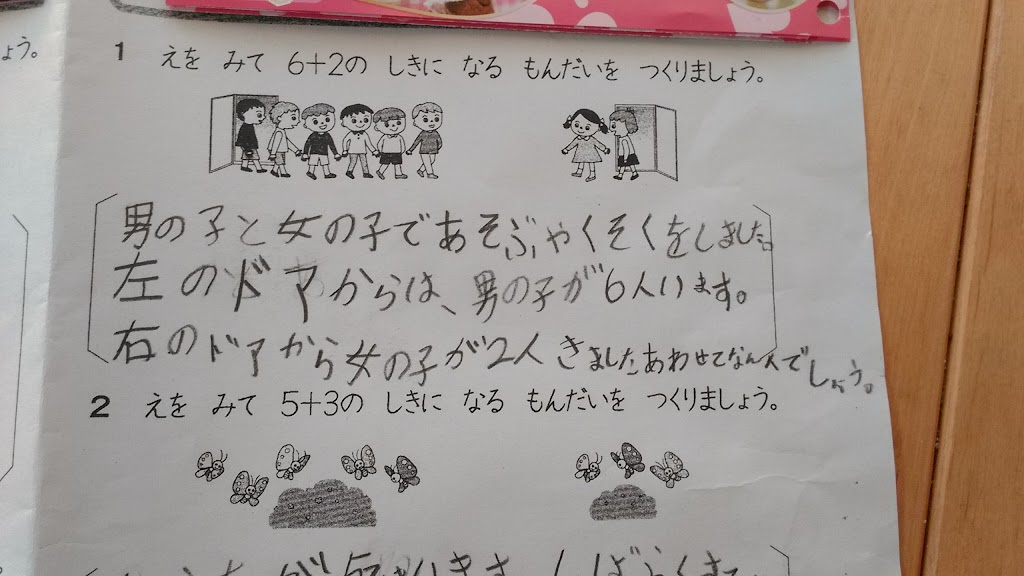 ょう。
1 えを みて 6+2の しきに なる もんだいを つくりましょう。
男の子と女の子であそぶやくそくをしました。
左のドアからは、男の子が6人います。
右のドアから女の子が2人きましたあわせてなん人でしょう。
2 えを みて 5+3の しきに なる もんだいを つくりましょう。